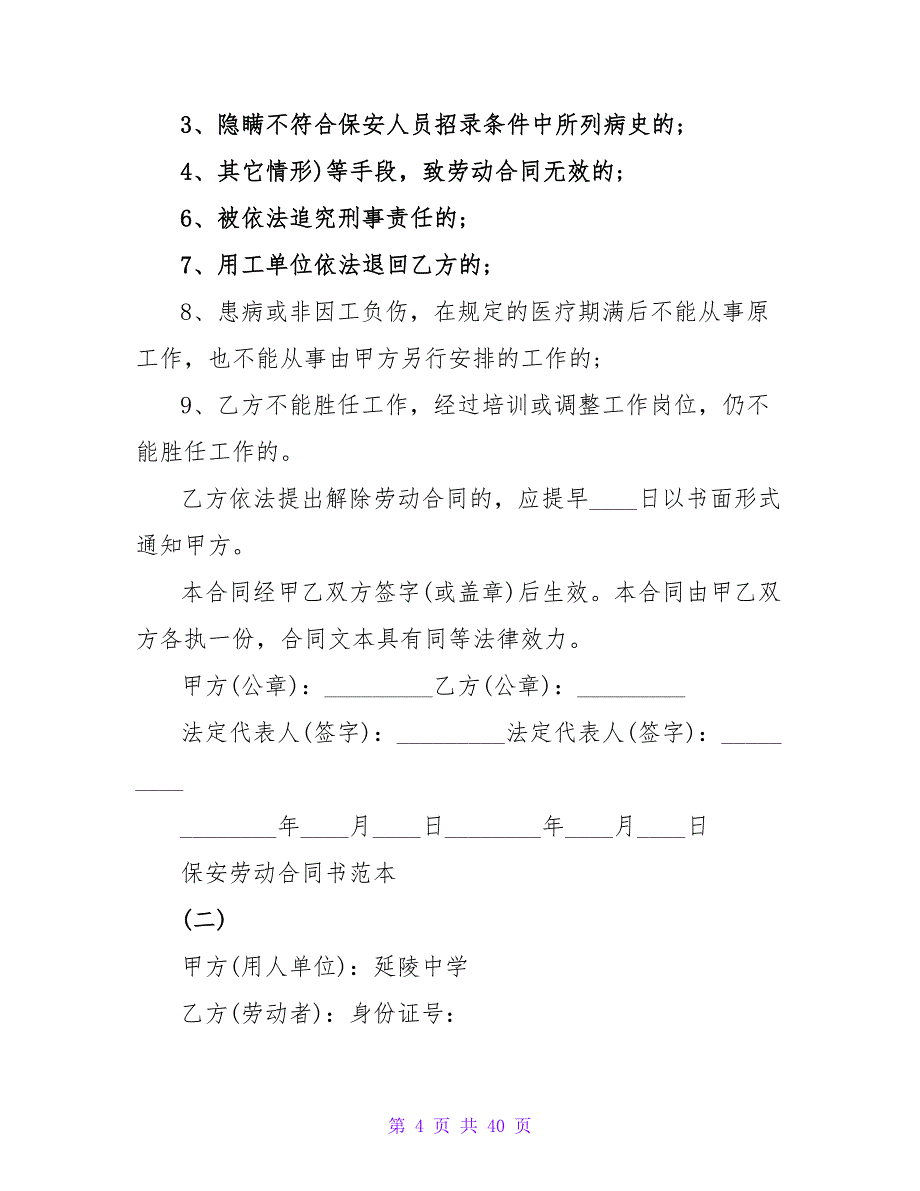 3、隐瞒不符合保安人员招录条件中所列病史的;
4、其它情形)等手段，致劳动合同无效的;
6、被依法追究刑事责任的;
7、用工单位依法退回乙方的;
8、患病或非因工负伤，在规定的医疗期满后不能从事原
工作，也不能从事由甲方另行安排的工作的;
9、乙方不能胜任工作，经过培训或调整工作岗位，仍不
能胜任工作的。
乙方依法提出解除劳动合同的，应提早____日以书面形式
通知甲方。
本合同经甲乙双方签字(或盖章)后生效。本合同由甲乙双
方各执一份，合同文本具有同等法律效力。
甲方(公章)：_________乙方(公章)：_________
法定代表人(签字)：_________法定代表人(签字)：_____
____
________年____月____日________年____月____日
保安劳动合同书范本
(二)
甲方(用人单位)：延陵中学
乙方(劳动者)：身份证号：
第 4 页 共 40 页